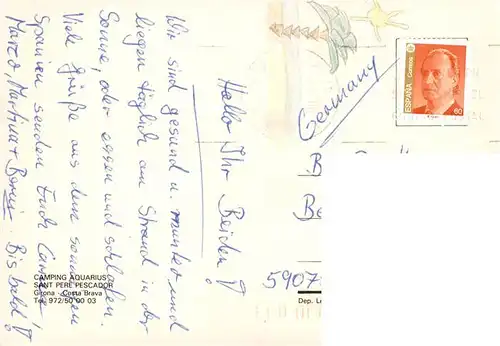 Hallo Ihr Beiden!
Wir sind gesund u. munter und
liegen täglich am Strand in der
Sonne, oder essen und schlafen.
Viele Grüße aus dem sonnigen
Spanien senden Euch
Marco, Martina + Bernie. Bis bald!
CAMPING AQUARIUS
SANT PERE PESCADOR
Girona - Costa Brava
Tel. 972/50 00 03
Germany
ESPAÑA Correos
60
B
Be
5907
Dep. Le